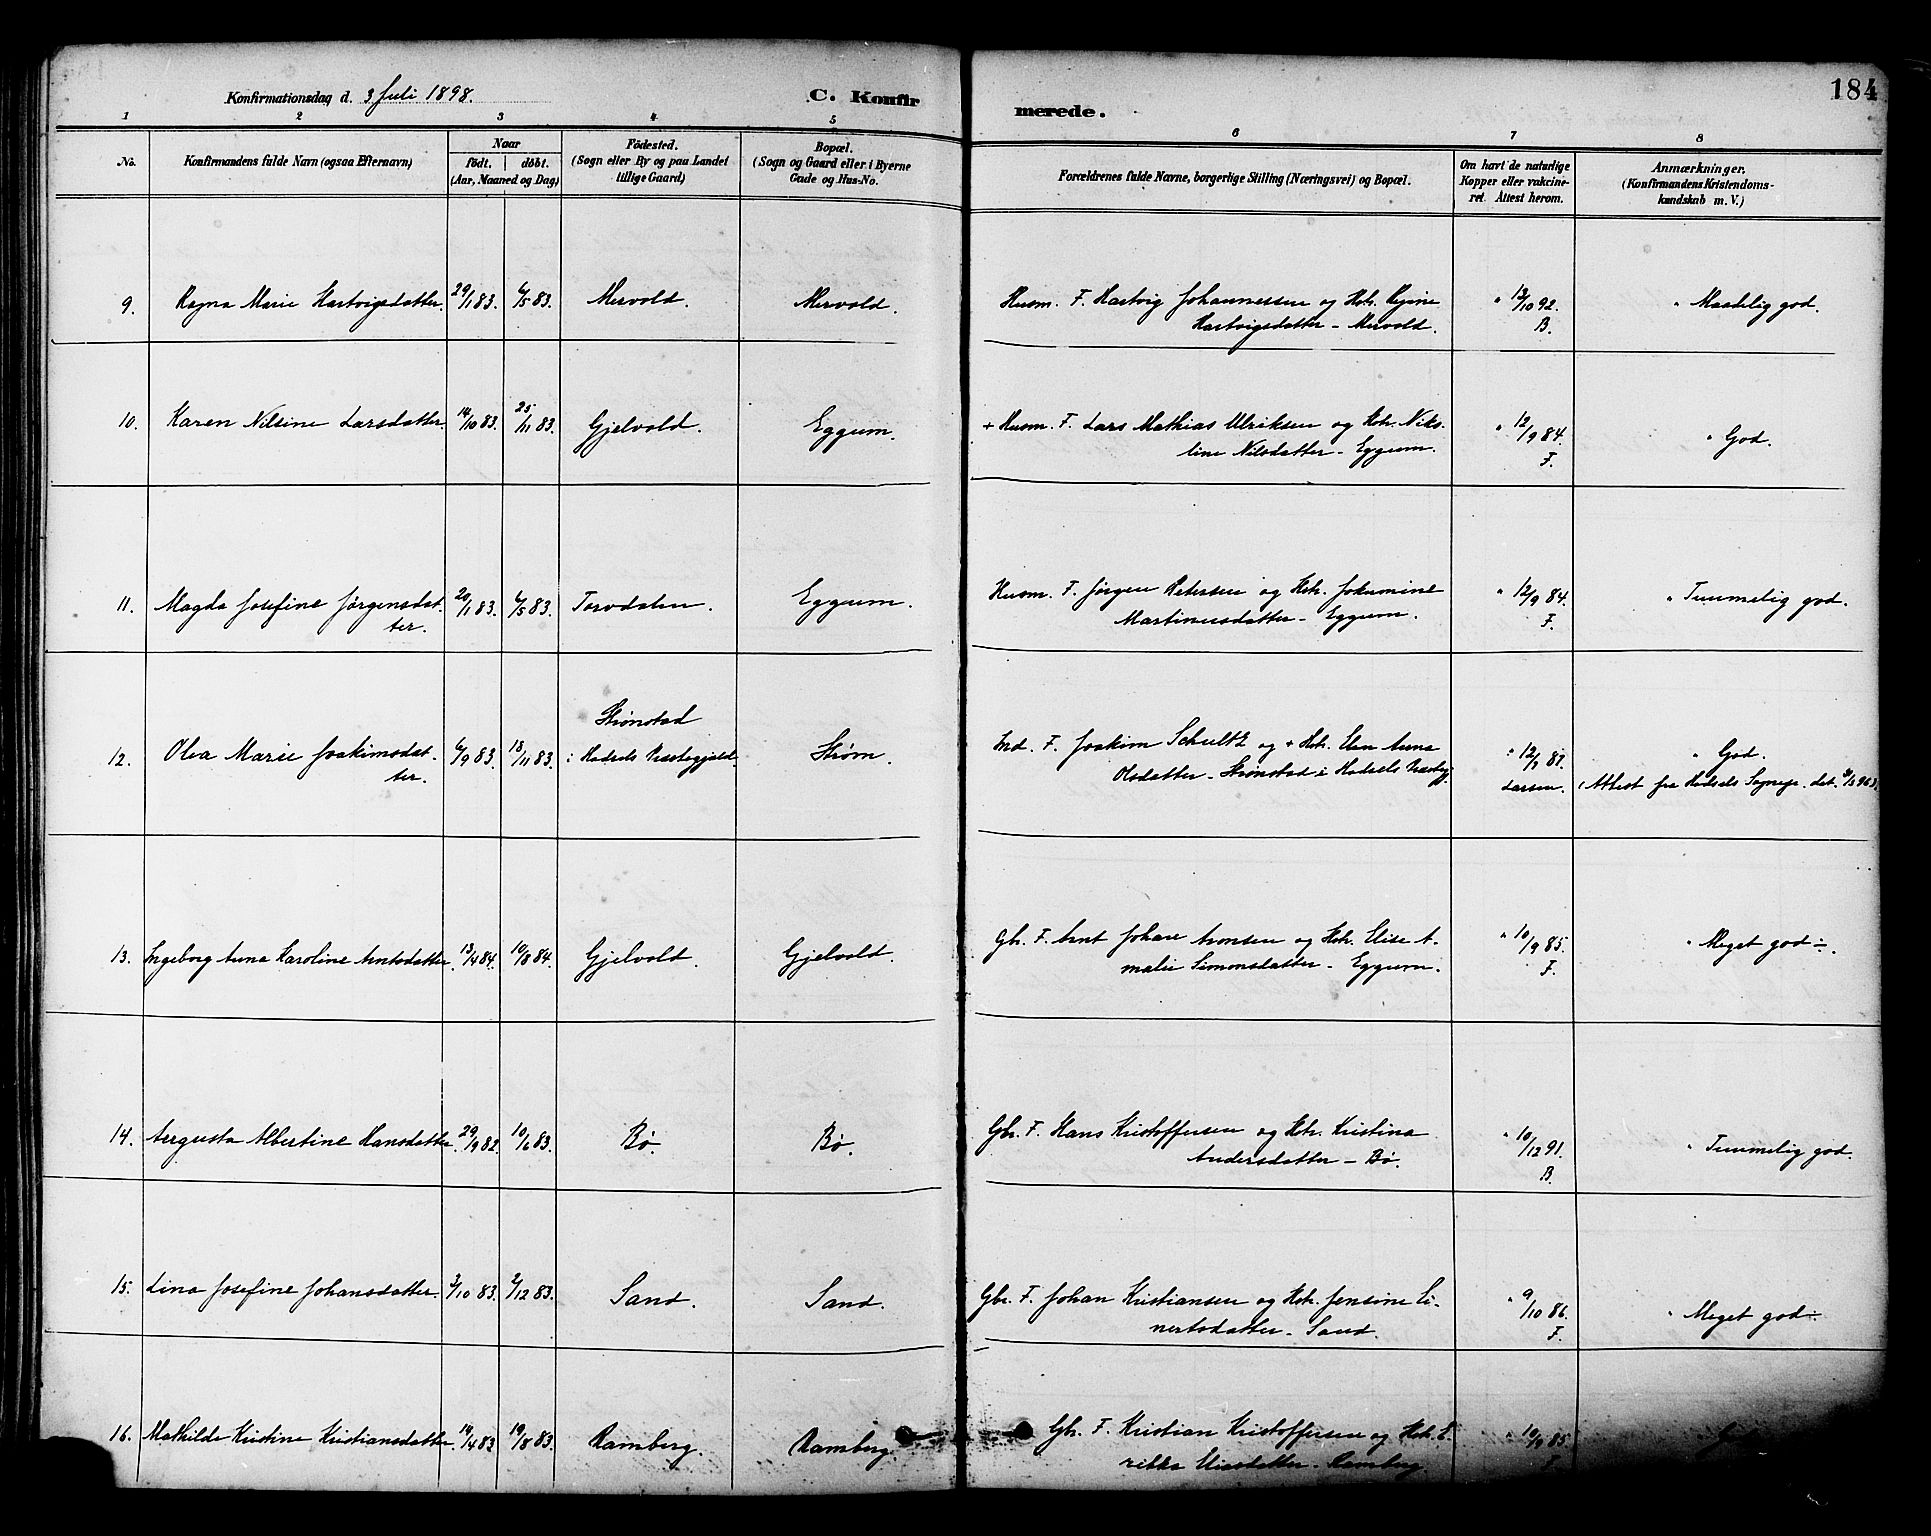 184
Konfirmationsdag d. 3 Juli 1898.
C. Konfirmerede.
1 2 3 4 5 6 7 8
No.
Konfirmandens fulde Navn (ogsaa Efternavn)
Naar
født. døbt.
(Aar, Maaned og Dag)
Fødested.
(Sogn eller By og paa Landet
tillige Gaard)
Bopæl.
(Sogn og Gaard eller i Byerne
Gade og Hus-No.
Forældrenes fulde Navne, borgerlige Stilling (Næringsvei) og Bopæl.
Om havt de naturlige
Kopper eller vakcine-
ret. Attest herom.
Anmærkninger.
(Konfirmandens Kristendoms-
kundskab m. V.)
9. Ragna Marie Hartvigsdatter. 29/1 83. 6/5 83. Mervold. Mervold. Husm. F. Hartvig Johannessen og Hstr. Regine " 12/10 92. " Maadelig god.
Hartvigsdatter - Mervold. B.
10. Karen Nilsine Larsdatter. 14/10 83. 25/11 83. Gjelvold. Eggum. + Husm. F. Lars Mathias Ulriksen og Hstr. Niko- " 12/9 84. " God.
line Nilsdatter - Eggum. F.
11. Magda Josefine Jørgensdat- 20/1 83. 6/5 83. Torvdalen. Eggum. Husm. F. Jørgen Petersen og Hstr. Jokumine " 12/9 84. " Temmelig god.
ter. Martinusdatter - Eggum. F.
12. Olea Marie Joakimsdat- 6/9 83. 18/11 83. Strønstad
ter. i Hadsels Præstegjeld. Strøm. Ind. F. Joakim Schultz og + Hstr. Elen Anna " God.
Olsdatter - Strønstad i Hadsels Præstegj. Larsen. (Attest fra Hadsels Sognep.
13. Ingeborg Anna Karoline Arntsdatter. 13/4 84. 10/8 84. Gjelvold. Gjelvold. Gbr. F. Arnt Johan Aronsen og Hstr. Elise A- " 10/9 85. " Meget god ÷.
malie Simonsdatter - Eggum. F.
14. Augusta Albertine Hansdatter. 29/9 82. 10/6 83. Bø. Bø. Gbr. F. Hans Kristoffersen og Hstr. Kristina " 10/12 91. " Temmelig god.
Andersdatter - Bø. B.
15. Lina Josefine Johansdatter. 3/10 83. 2/12 83. Sand. Sand. Gbr. F. Johan Kristiansen og Hstr. Jensine Li- " 9/10 86. " Meget god ÷.
nertsdatter - Sand. F.
16. Mathilde Kristine Kristiansdatter. 14/4 83. 19/8 83. Ramberg. Ramberg. Gbr. F. Kristian Kristoffersen og Hstr. E- " 10/9 85
rikka - Ramberg.